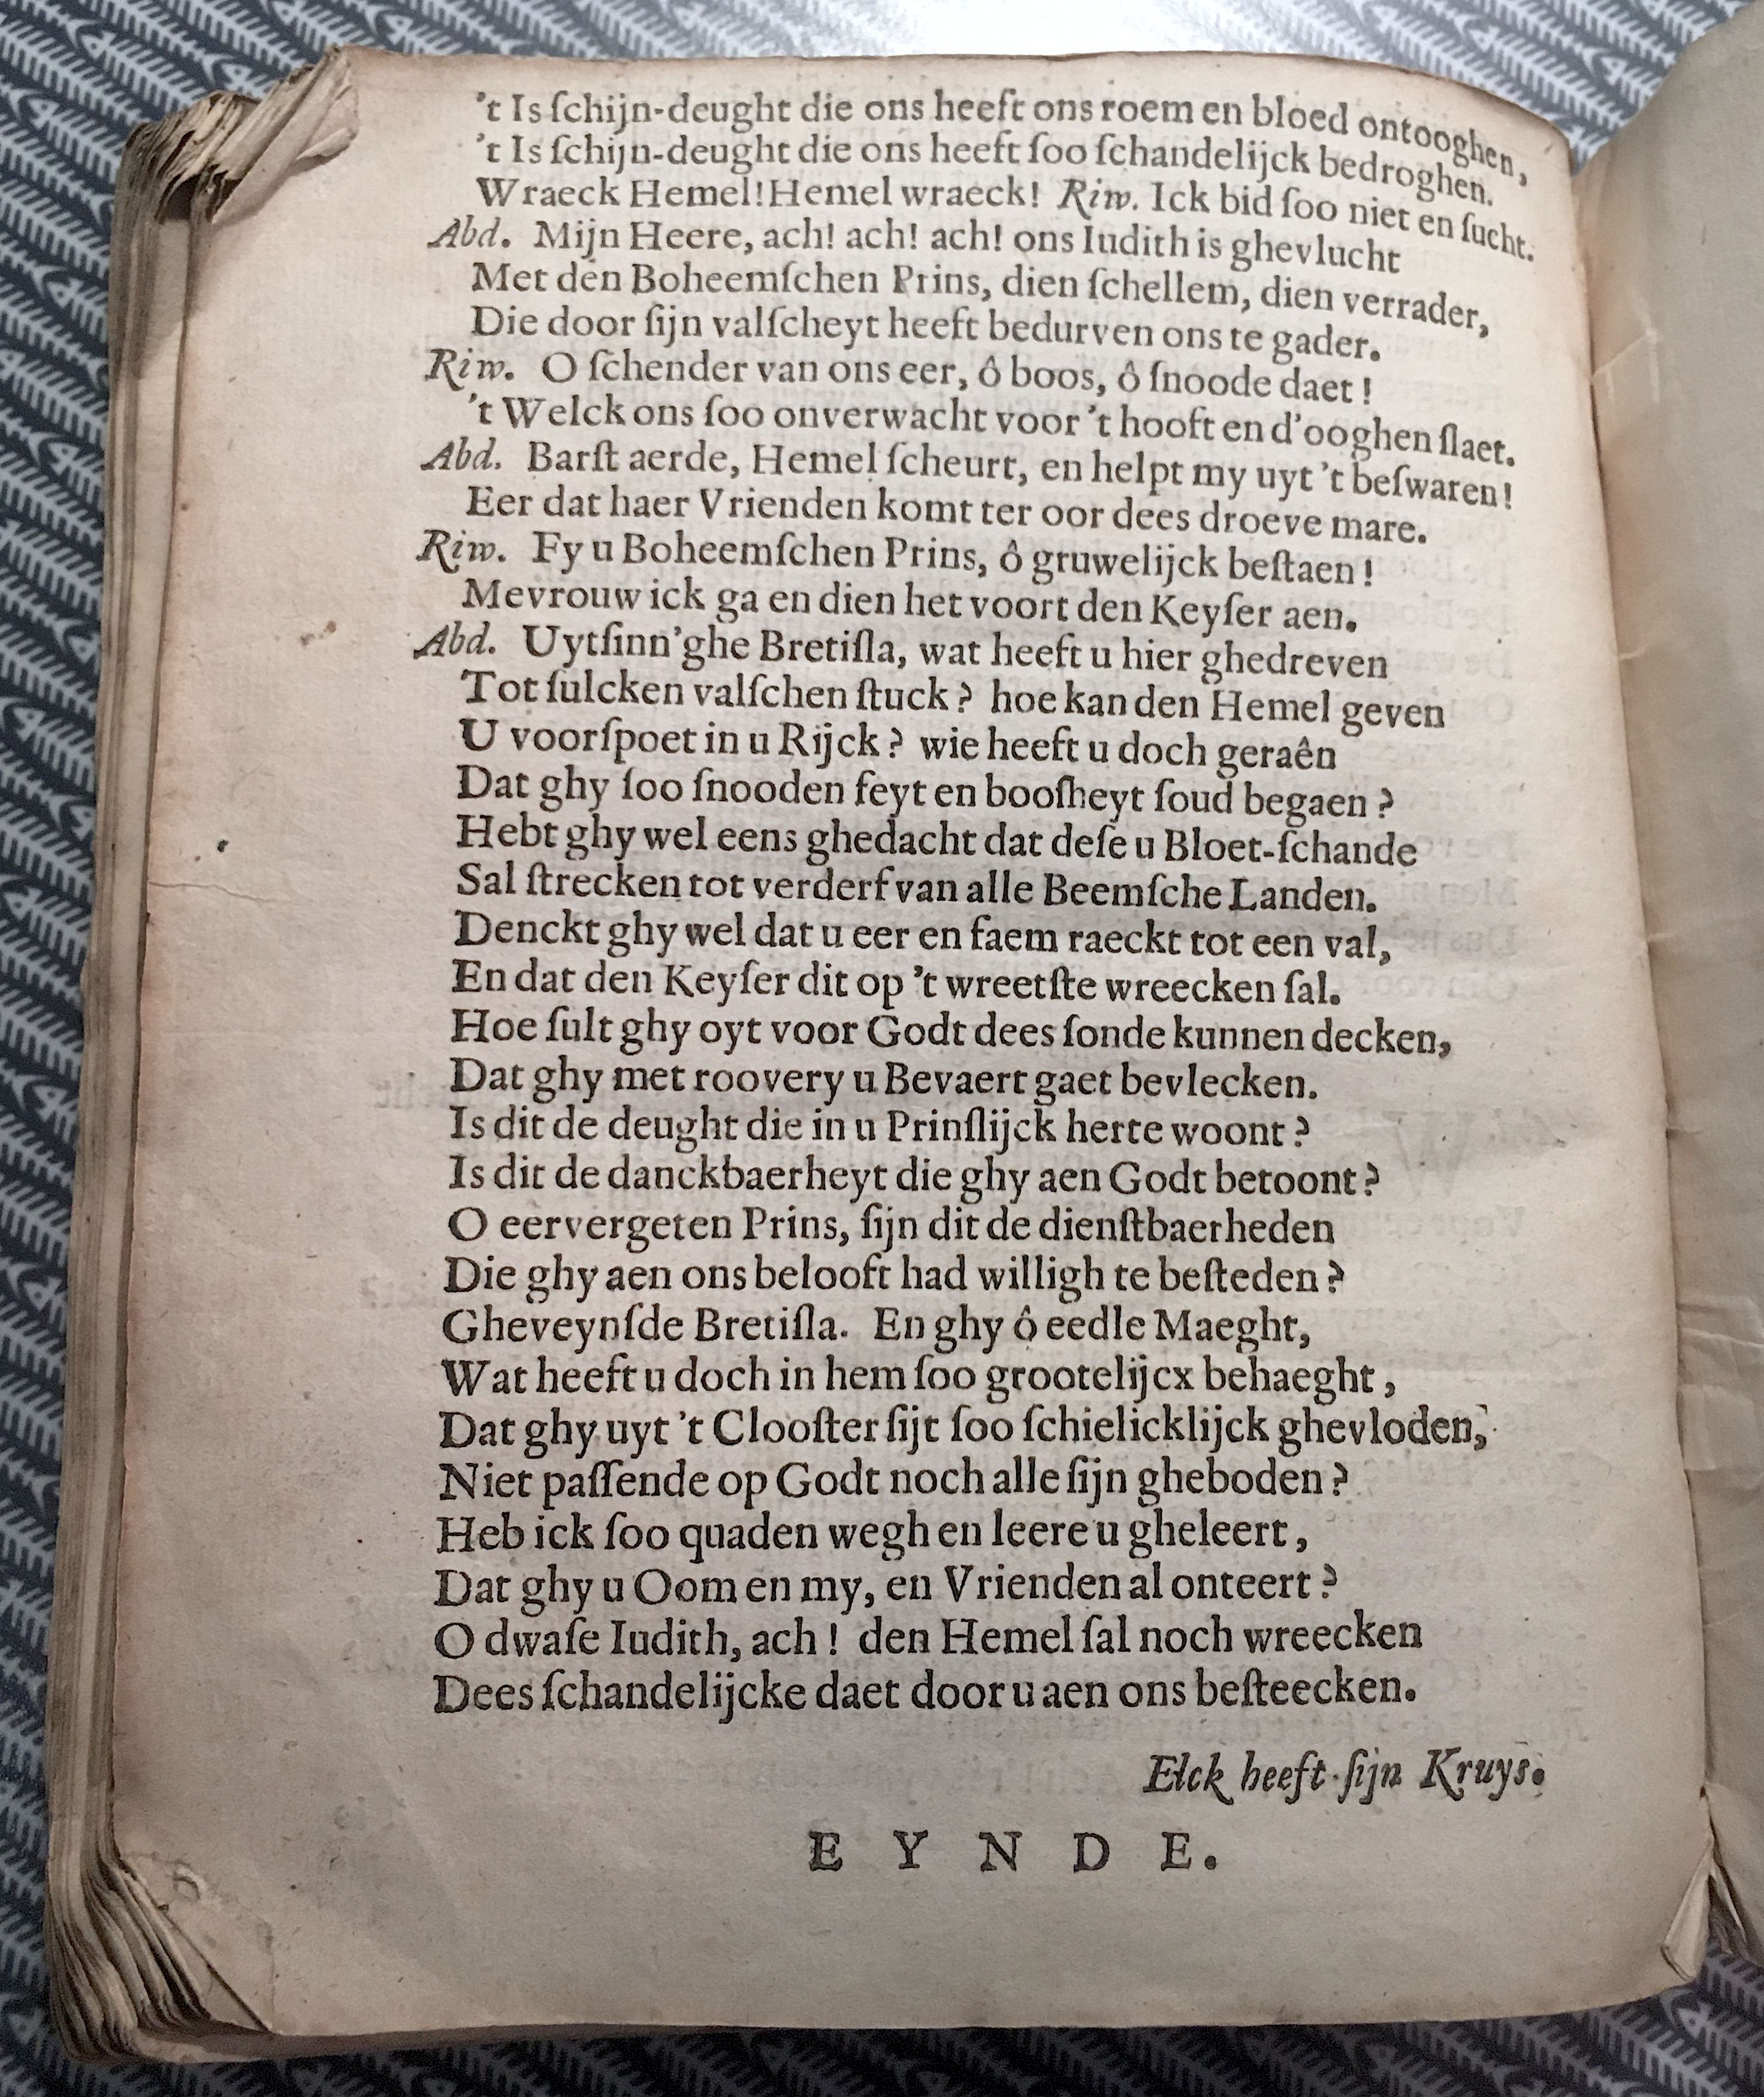 't Is ſchijn-deught die ons heeft ons roem en bloed ontooghen,
't Is ſchijn-deught die ons heeft ſoo ſchandelijck bedroghen.
Wraeck Hemel! Hemel wraeck! Riw. Ick bid ſoo niet en ſucht.
Abd. Mijn Heere, ach! ach! ach! ons Iudith is ghevlucht
Met den Boheemſchen Prins, dien ſchellem, dien verrader,
Die door ſijn valſcheyt heeft bedurven ons te gader.
Riw. O ſchender van ons eer, ô boos, ô ſnoode daet!
't Welck ons ſoo onverwacht voor 't hooft en d'ooghen ſlaet.
Abd. Barſt aerde, Hemel ſcheurt, en helpt my uyt 't beſwaren!
Eer dat haer Vrienden komt ter oor dees droeve mare.
Riw. Fy u Boheemſchen Prins, ô gruwelijck beſtaen!
Mevrouw ick ga en dien het voort den Keyſer aen.
Abd. Uytſinn'ghe Bretiſla, wat heeft u hier ghedreven
Tot ſulcken valſchen ſtuck? hoe kan den Hemel geven
U voorſpoet in u Rijck? wie heeft u doch geraên
Dat ghy ſoo ſnooden feyt en booſheyt ſoud begaen?
Hebt ghy wel eens ghedacht dat deſe u Bloet-ſchande
Sal ſtrecken tot verderf van alle Beemſche Landen.
Denckt ghy wel dat u eer en faem raeckt tot een val,
En dat den Keyſer dit op 't wreetſte wreecken ſal.
Hoe ſult ghy oyt voor Godt dees ſonde kunnen decken,
Dat ghy met roovery u Bevaert gaet bevlecken.
Is dit de deught die in u Prinſlijck herte woont?
Is dit de danckbaerheyt die ghy aen Godt betoont?
O eervergeten Prins, ſijn dit de dienſtbaerheden
Die ghy aen ons belooft had willigh te beſteden?
Gheveynſde Bretiſla. En ghy ô eedle Maeght,
Wat heeft u doch in hem ſoo grootelijcx behaeght,
Dat ghy uyt 't Clooſter ſijt ſoo ſchielicklijck ghevloden,
Niet paſſende op Godt noch alle ſijn gheboden?
Heb ick ſoo quaden wegh en leere u gheleert,
Dat ghy u Oom en my, en Vrienden al onteert?
O dwaſe Iudith, ach! den Hemel ſal noch wreecken
Dees ſchandelijcke daet door u aen ons beſteecken.
Elck heeft ſijn Kruys.
EYNDE.